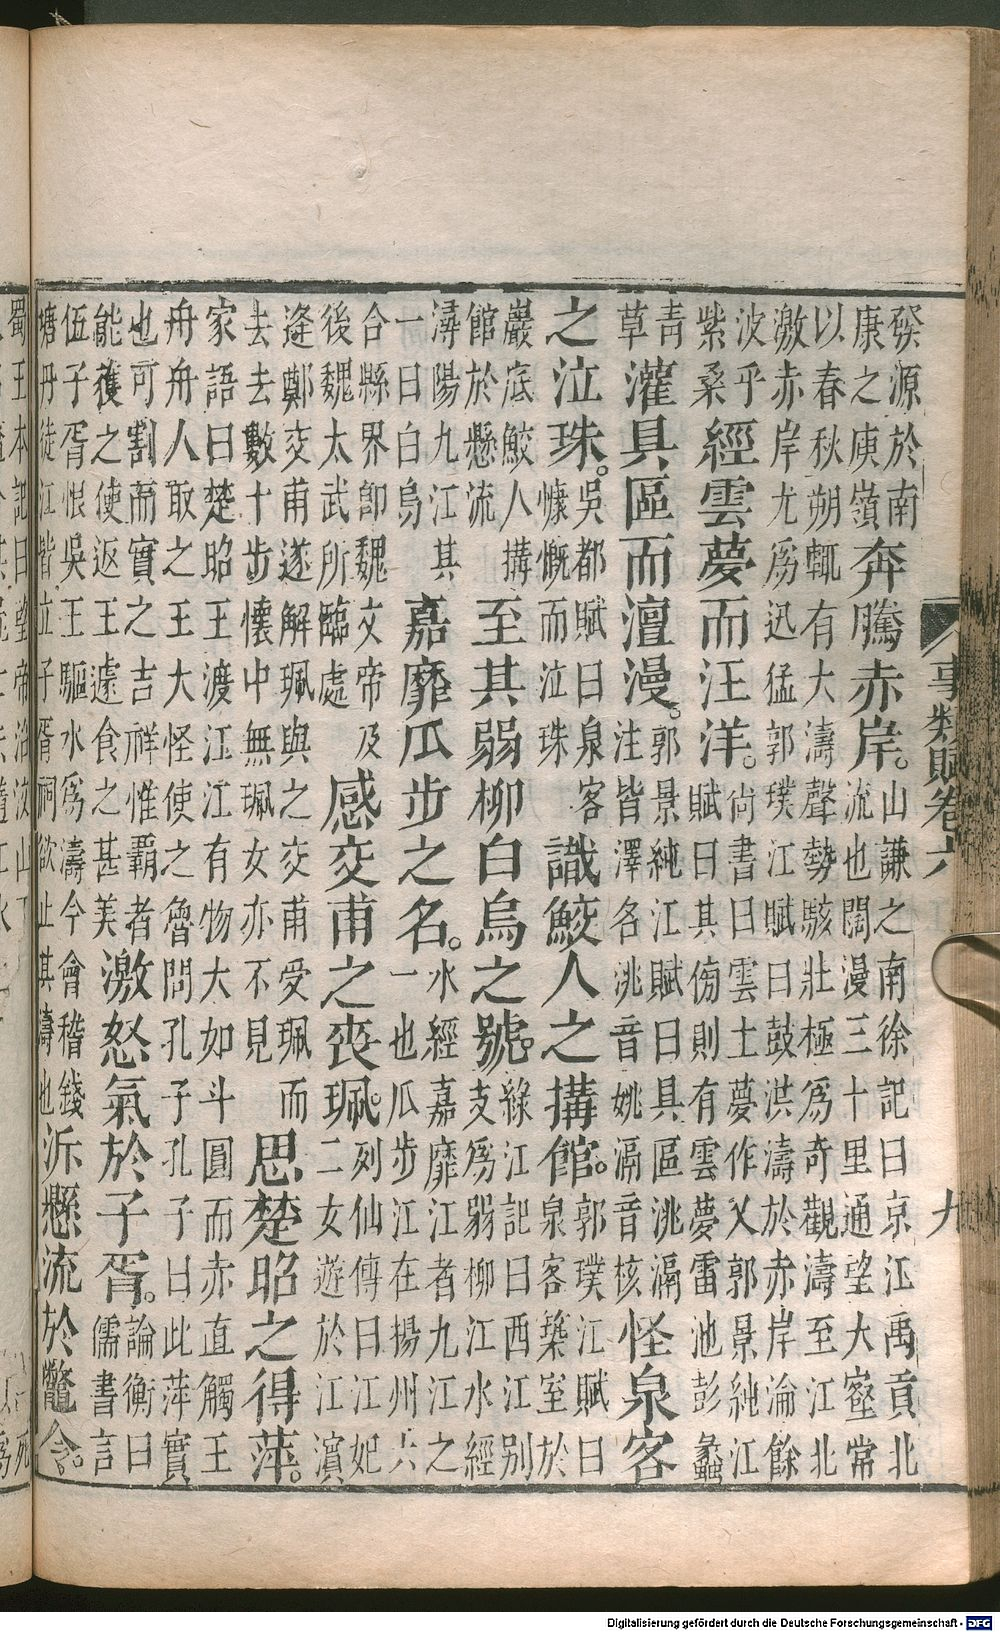 事類賦卷六
九
發源於南
康之庾嶺
奔騰赤岸。
山謙之南徐記曰京江禹貢北
流也闊漫三十里通望大壑常
以春秋朔輒有大濤聲勢駭壯極爲奇觀濤至江北
激赤岸尤爲迅猛郭璞江賦曰鼓洪濤於赤岸淪餘
波乎
紫桑
經雲夢而汪洋。
尚書曰雲土夢作乂郭景純江
賦曰其傍則有雲夢雷池彭蠡
青
草
灌具區而澶漫。
郭景純江賦曰具區洮滆
注皆澤名洮音姚滆音核
怪泉客
之泣珠。
吳都賦曰泉客
慷慨而泣珠
識鮫人之搆館。
郭璞江賦曰
泉客築室於
巖底鮫人搆
館於懸流
至其弱柳白烏之號。
綠江記曰西江別
支爲弱柳江水經
潯陽九江其
一曰白烏
嘉靡瓜步之名。
水經嘉靡江者九江之
一也瓜步江在揚州六
合縣界卽魏文帝及
後魏太武所臨處
感交甫之喪珮。
列仙傳曰江妃
二女遊於江濱
逢鄭交甫遂解珮與之交甫受珮而
去去數十步懷中無珮女亦不見
思楚昭之得萍。
家語曰楚昭王渡江江有物大如斗圓而赤直觸王
舟舟人取之王大怪使之魯問孔子孔子曰此萍實
也可割而實之吉祥惟霸者
能獲之使返王遽食之甚美
激怒氣於子胥。
論衡曰
儒書言
伍子胥恨吳王驅水爲濤今會稽錢
塘丹徒江皆立子胥祠欲止其濤也
泝懸流於鼈令。
蜀王本記曰望帝治汶山
Digitalisierung gefördert durch die Deutsche Forschungsgemeinschaft - DFG